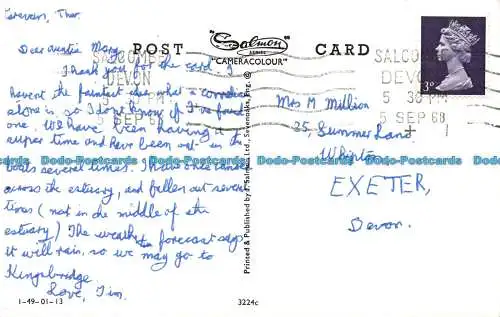 Caravan, Thur.
Dear Auntie Mary,
Thank you for the card. I
havent the faintest idea what a
alone is, so I dont know if I've found
one. We have been having a
super time and have been out in the
boats several times. I have once
across the estuary, and fallen out several
times (not in the middle of the
estuary) The weather forecast says
it will rain, so we may go to
Kingsbridge
Love, Tim.
1-49-01-13
POST CARD
Salmon
SERIES
"CAMERACOLOUR"
Printed & Published by J. Salmon Ltd., Sevenoaks, Eng. ©
3224c
SALCOMBE
DEVON
5 PM
5 SEP
SALCOMBE
DEVON
5 30 PM
5 SEP 68
3D
Mrs M Million
25, Summerland
Whipton
EXETER,
Devon.
Dodo-Postcards Dodo-Postcards Dodo-Postcards Dodo-Postcards Dodo-Postcards
Dodo-Postcards Dodo-Postcards Dodo-Postcards Dodo-Postcards Dodo-Postcards